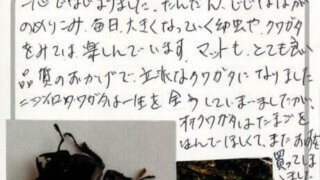 なじまりました。だんだん、じじばばが
のめりこみ、毎日、大きくなっていく幼虫や、クワガタ
をみては、楽しんでいます。マットも、とても良い
品質のおかげで、立派なクワガタになりました
ニジイロクワガタは一生を全うしてしまいましたが、
オオクワガタはたまごを
うんでほしくて、また
買ってしま
いました